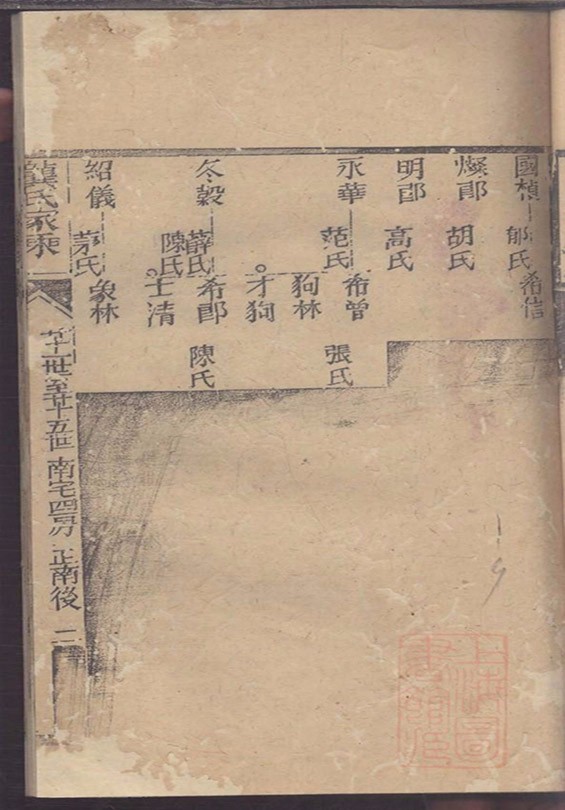 國楨 郇氏 希信
燦郎 胡氏
明郎 高氏
永華 范氏 希曾 張氏
狗林
才狗
冬穀 薛氏 陳氏 希郎 陳氏
士清
紹儀 茅氏 象林
龔氏家乘
廿一世至廿五世 南宅四房 正南後 二
上海圖書館藏